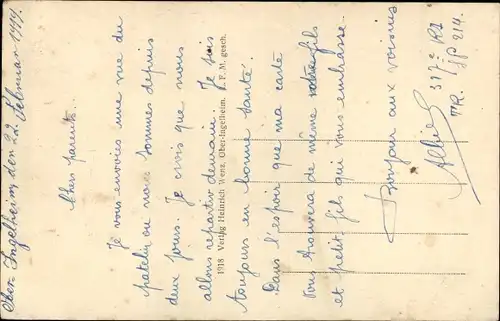 Ober-Ingelheim den 22. Februar 1919
Chers parents.
Je vous envoies une vue du
patelin ou nous sommes depuis
deux jours. Je crois que nous
allons repartir demain. Je suis
toujours en bonne santé.
Dans l'espoir que ma carte
vous trouvera de même votre fils
et petit fils qui vous embrasse.
Bonjour aux voisins
Albert
37e RI
SP 214.
TR.
1918 Verlag Heinrich Wenz, Ober-Ingelheim. F. M. gesch.